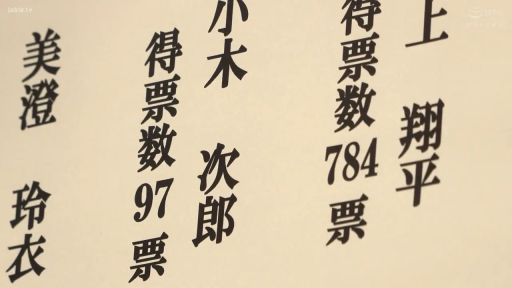 上 翔平
得票数 784 票
小木 次郎
得票数 97 票
美澄 玲衣